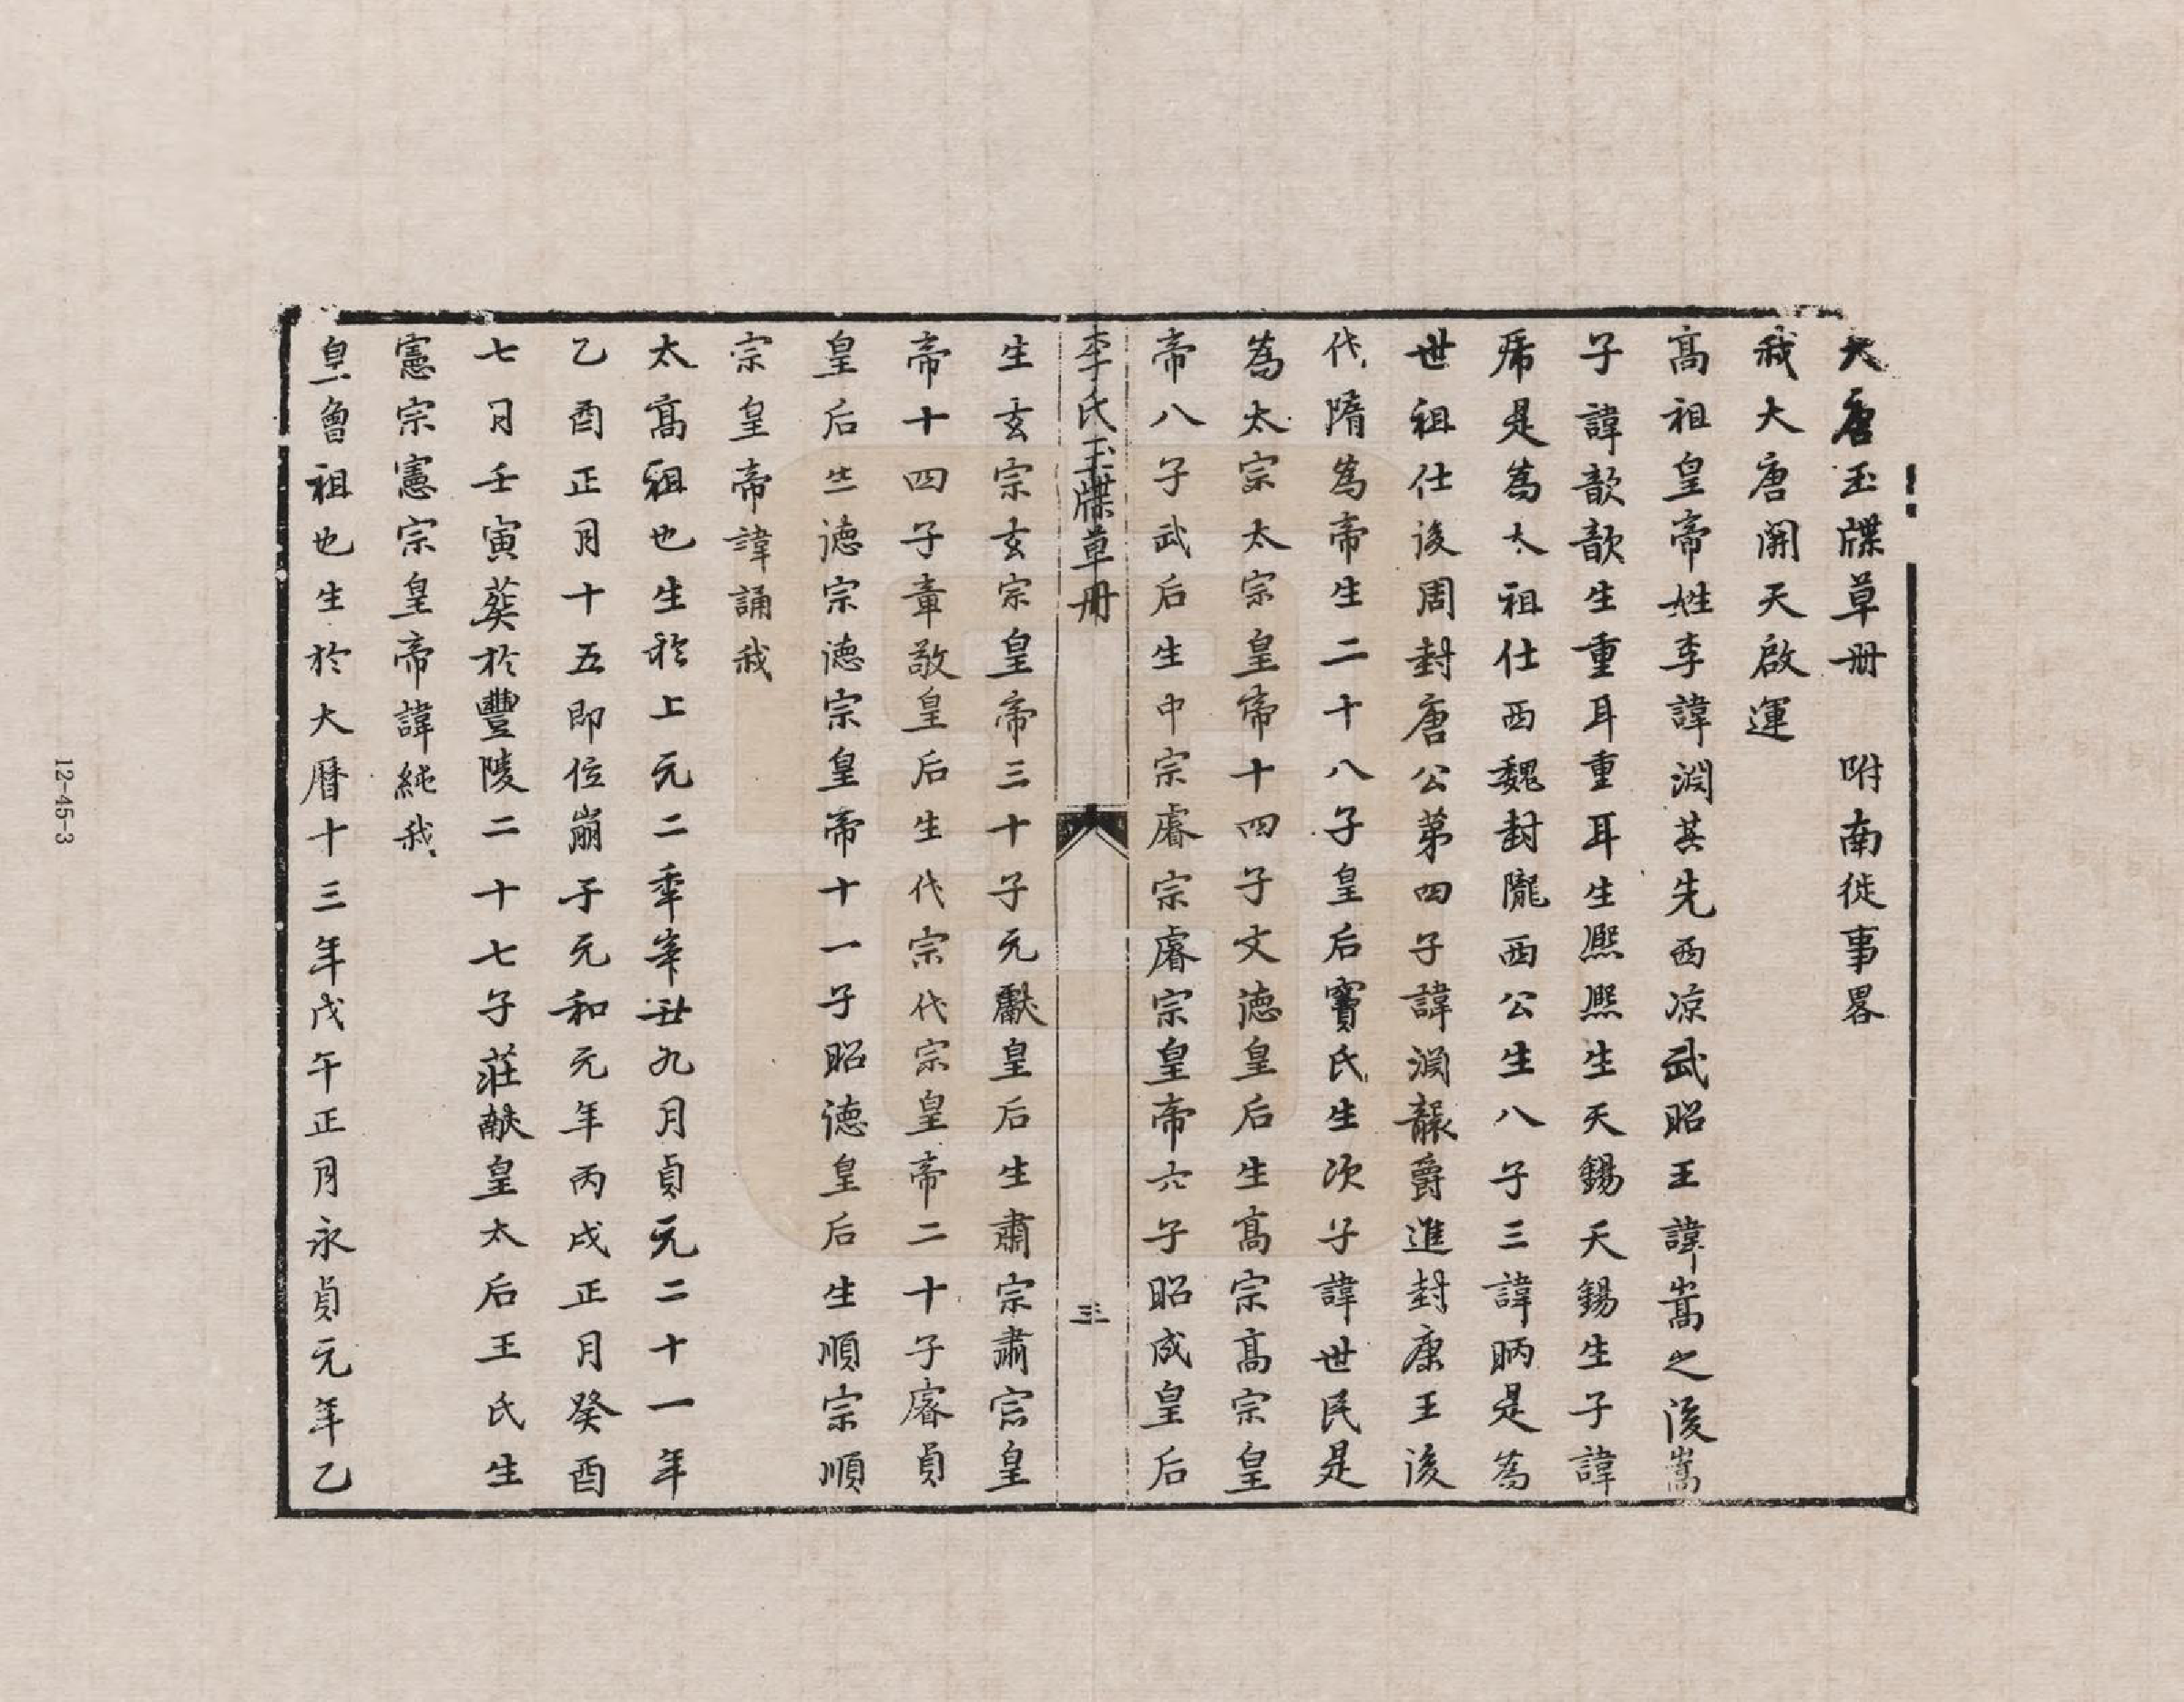 大唐玉牒草册　附南徙事畧
我大唐開天啟運
髙祖皇帝姓李諱淵其先西凉武昭王諱嵩之後嵩
子諱歆歆生重耳重耳生熈熈生天錫天錫生子諱
乕是為太祖仕西魏封隴西公生八子三諱昞是為
世祖仕後周封唐公第四子諱淵襲爵進封康王後
代隋為帝生二十八子皇后竇氏生次子諱世民是
為太宗太宗皇帝十四子文德皇后生髙宗髙宗皇
帝八子武后生中宗睿宗睿宗皇帝六子昭成皇后
李氏玉牒草册
三
生玄宗玄宗皇帝三十子元獻皇后生肅宗肅宗皇
帝十四子章敬皇后生代宗代宗皇帝二十子睿貞
皇后生德宗德宗皇帝十一子昭德皇后生順宗順
宗皇帝諱誦我
太髙祖也生於上元二年辛丑九月貞元二十一年
乙酉正月十五即位崩于元和元年丙戌正月癸酉
七月壬寅葬於豐陵二十七子莊献皇太后王氏生
憲宗憲宗皇帝諱純我
皇曾祖也生於大曆十三年戊午正月永貞元年乙
12-45-3